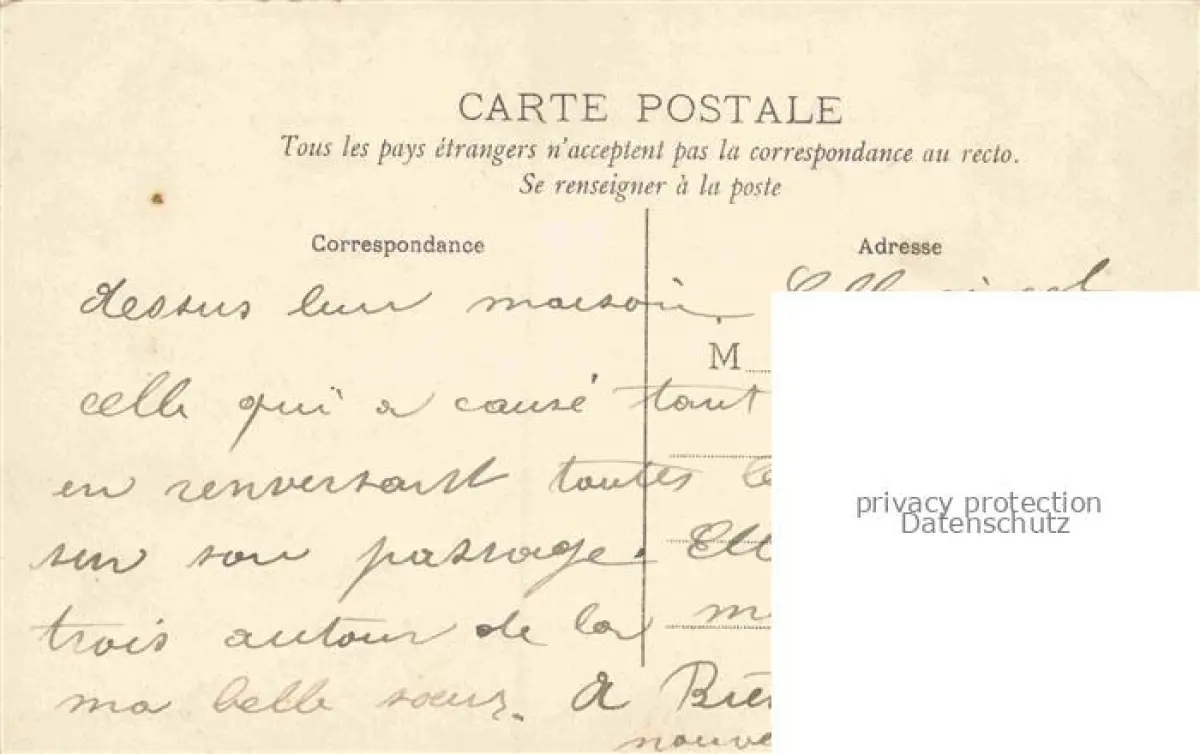 CARTE POSTALE
Tous les pays étrangers n'acceptent pas la correspondance au recto.
Se renseigner à la poste
Correspondance
Adresse
dessus leur maison.
M
celle qui a causé tant
en renversant toutes
sur son passage.
trois autour de la
ma belle sœur. à
privacy protection
Datenschutz